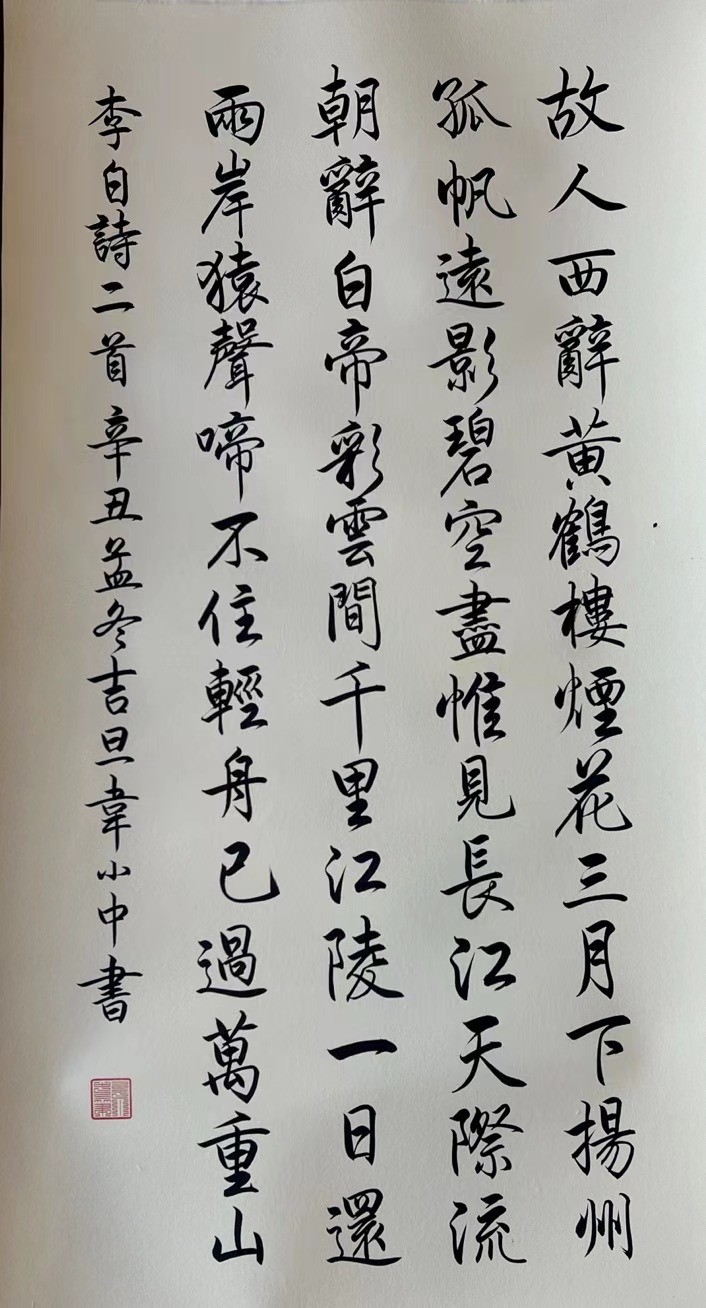 故人西辭黃鶴樓煙花三月下揚州
孤帆遠影碧空盡惟見長江天際流
朝辭白帝彩雲間千里江陵一日還
兩岸猿聲啼不住輕舟已過萬重山
李白詩二首辛丑孟冬吉旦韋小中書